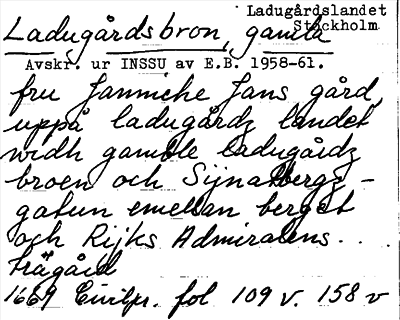 Ladugårdslandet
Stockholm
Ladugårdsbron, gamla
Avskr. ur INSSU av E.B. 1958-61.
fru Janniche Jans gård,
uppå ladugårdz landet
widh gamble ladugårdz
broen och Sijnatbergz-
gatun emellan berget
och Rijks Admiralens...
trägård
1669 Civilpr. fol 109 v. 158 v